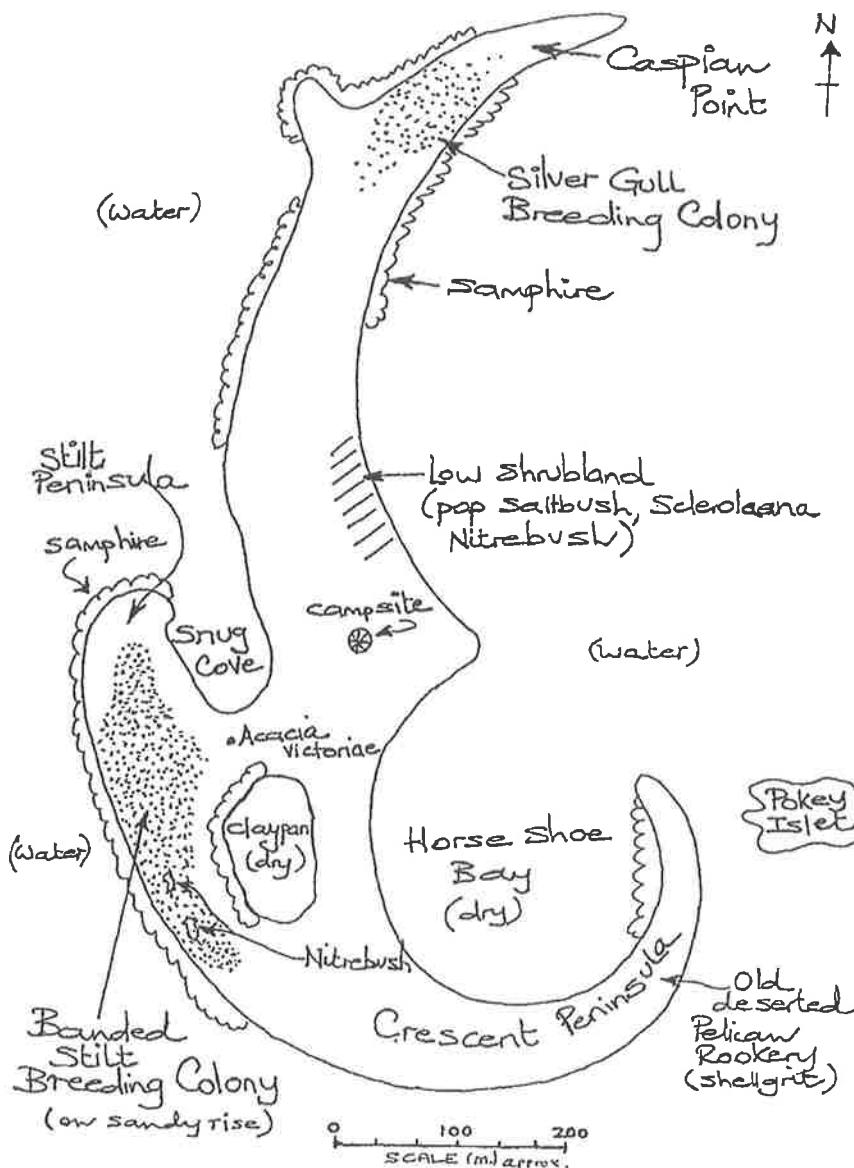 N
Caspian
Point
Silver Gull
Breeding Colony
(water)
Samphire
Stilt
Peninsula
Low Shrubland
(pop saltbush, Sclerolaena
Nitrebush)
samphire
campsite
Snug
Cove
(water)
Acacia
victoriae
Pokey
Islet
Claypan
(dry)
Horse Shoe
Bay
(dry)
(water)
Nitrebush
Crescent Peninsula
Old
deserted
Pelican
Rookery
(shellgrit)
Banded
Stilt
Breeding Colony
(on sandy rise)
0 100 200
SCALE (m.) approx.